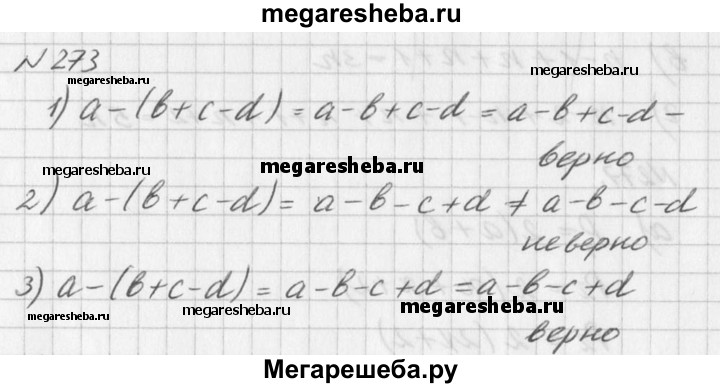 megaresheba.ru
N 273
megaresheba.ru
megaresheba.ru
1) a-(b+c-d) = a-b+c-d = a-b+c-d -
верно
megaresheba.ru
megaresheba.ru
2) a-(b+c-d) = a-b-c+d ≠ a-b-c-d
неверно
3) a-(b+c-d) = a-b-c+d = a-b-c+d
megaresheba.ru
megaresheba.ru
megaresheba.ru
верно
Мегарешеба.ру